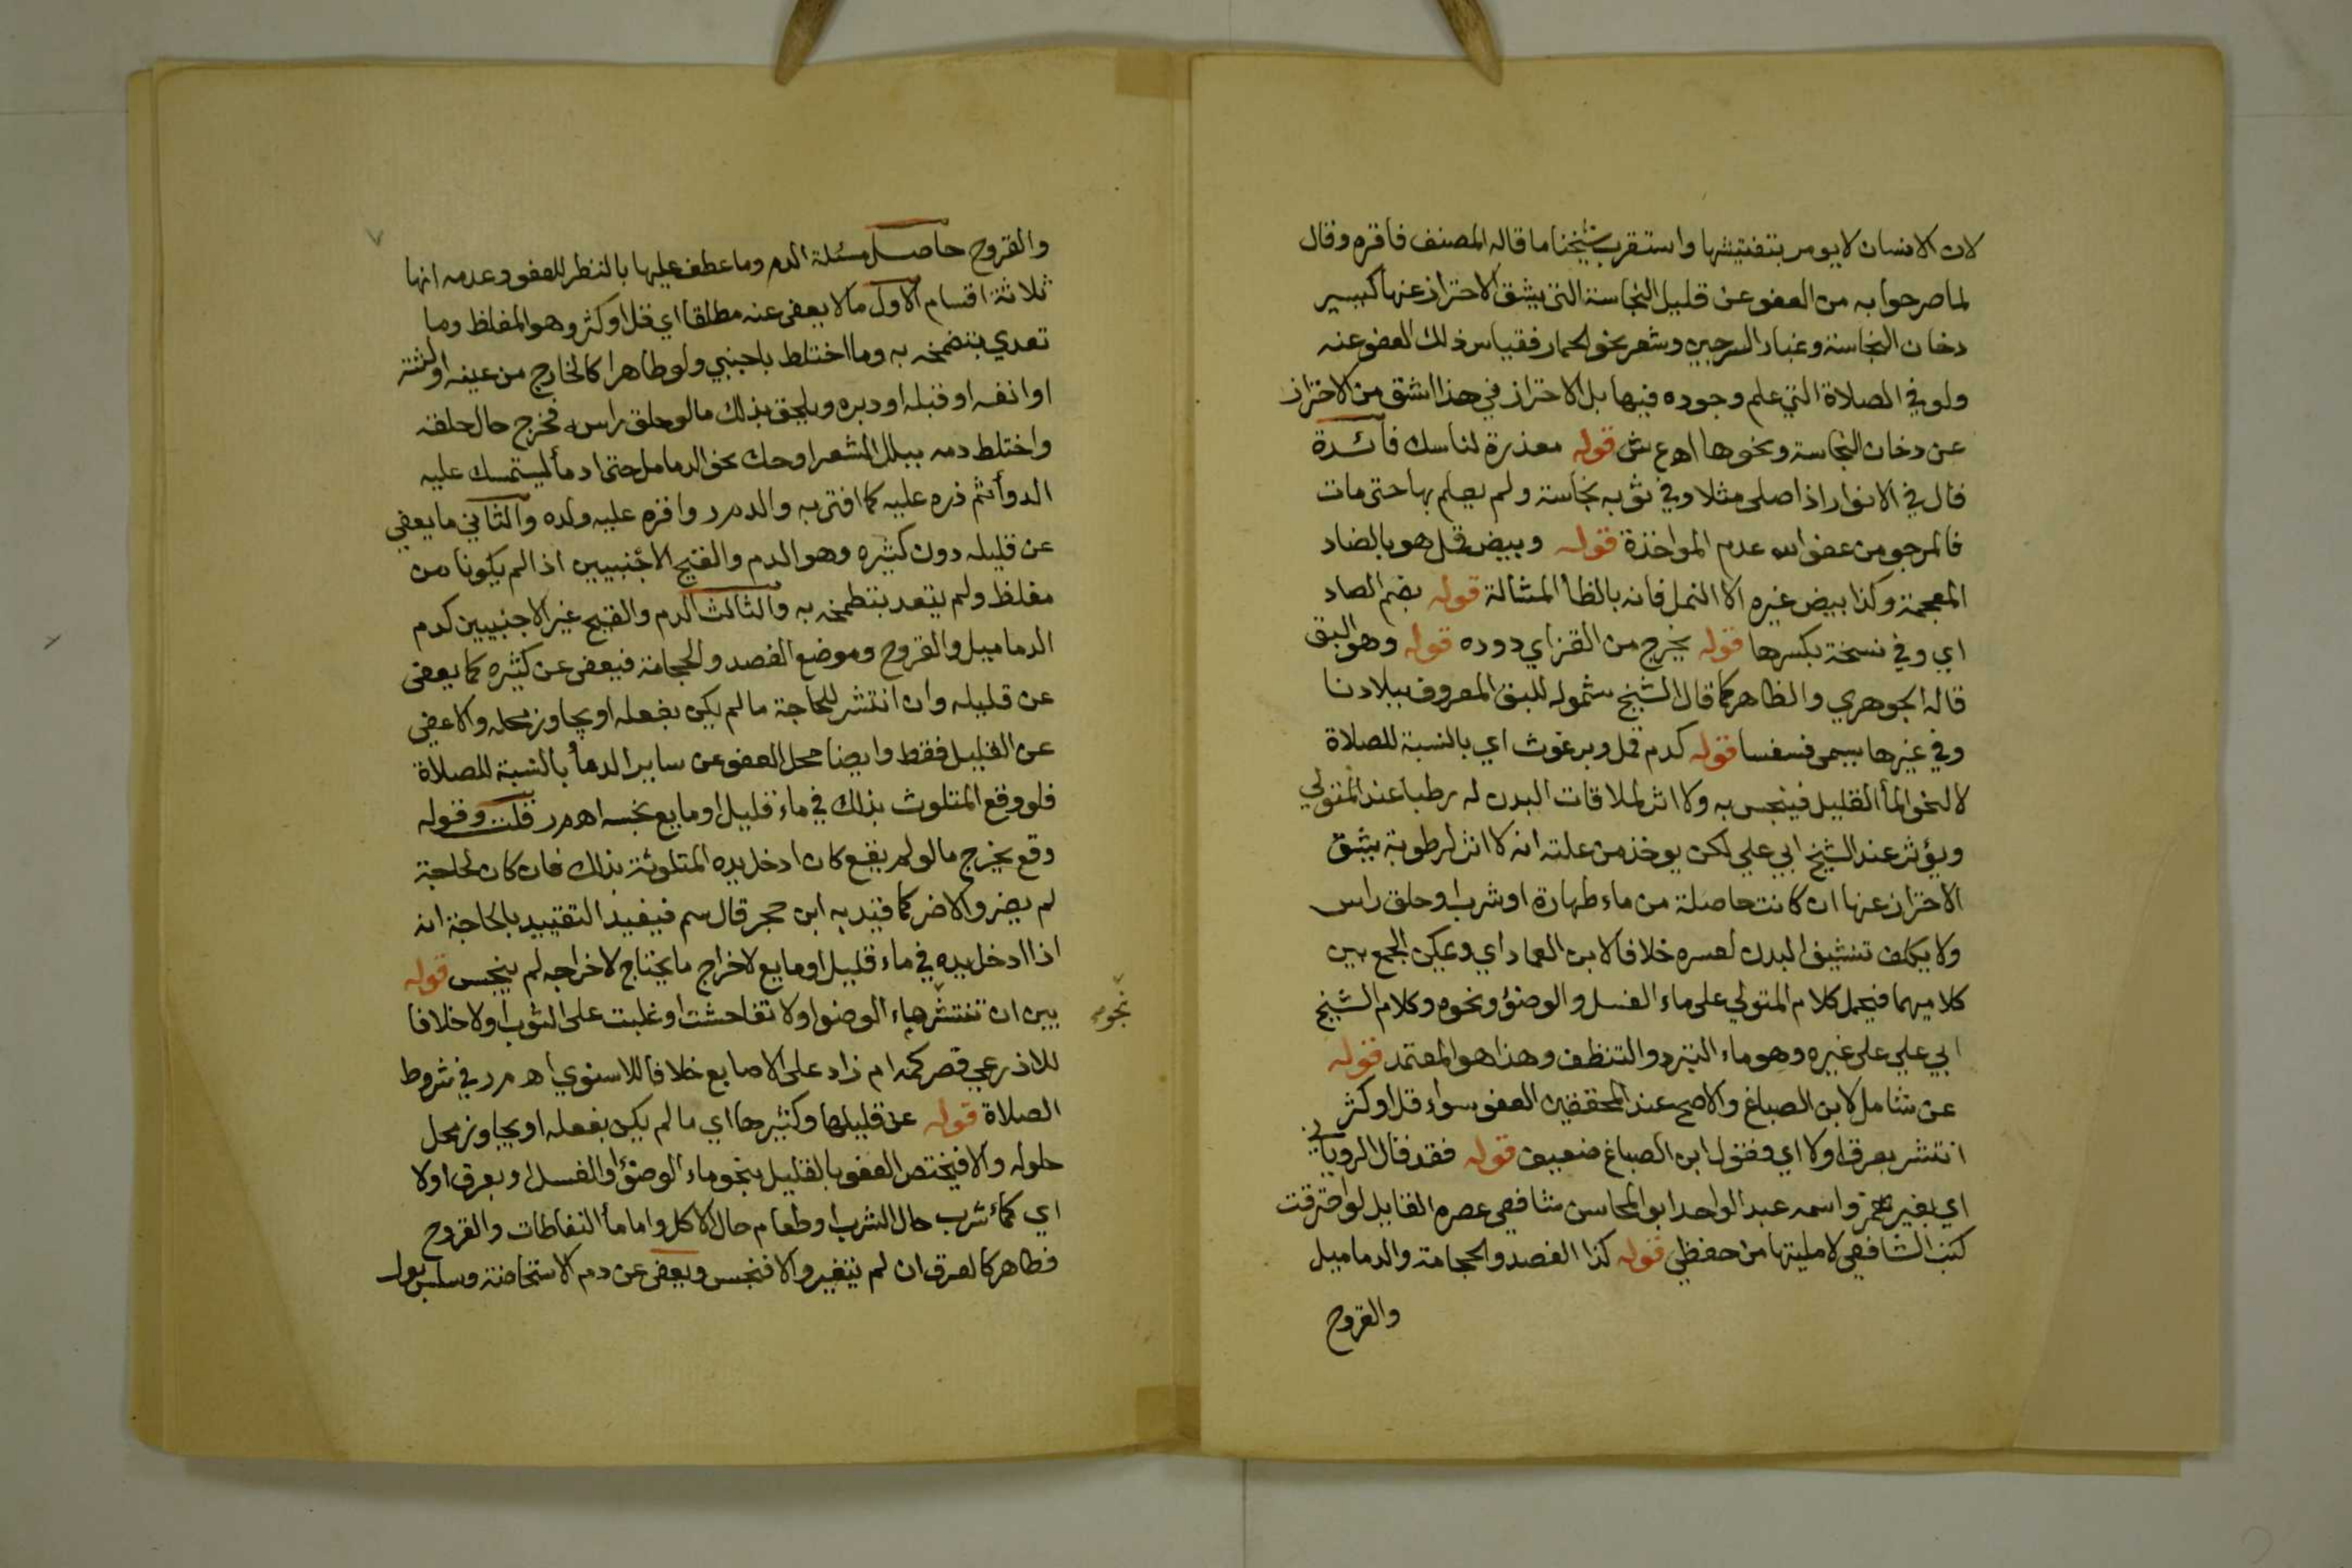 لان الانسان لا يومر بتفتيشها واستقرب شيخنا ما قاله المصنف فاقره وقال
لما صرحوا به من العفو عن قليل النجاسة التي يشق الاحتراز عنها كيسير
دخان النجاسة وغبار السرجين وشعر نحو الحمار فقياس ذلك العفو عنه
ولو في الصلاة التي علم وجوده فيها بل الاحتراز في هذا اشق من الاحتراز
عن دخان النجاسة ونحوها اه ع ش قوله معذرة لناسك فائدة
قال في الانوار اذا صلى مثلا وفي ثوبه نجاسة ولم يعلم بها حتى مات
فالمرجو من عفو الله عدم المواخذة قوله وبيض قمل هو بالضاد
المعجمة وكذا بيض غيره الا النمل فانه بالظأ المشالة قوله بضم الصاد
اي وفي نسخة بكسرها قوله يخرج من القز اي دوده قوله وهو البق
قاله الجوهري والظاهر كما قال الشيخ شموله للبق المعروف ببلادنا
وفي غيرها يسمى فسفسا قوله كدم قمل وبرغوث اي بالنسبة للصلاة
لا لنحو المأ القليل فينجس به ولا اثر لملاقات البدن له رطبا عند المتولي
ويؤثر عند الشيخ ابي علي لكن يوخذ من علته انه لا اثر لرطوبة يشق
الاحتراز عنها ان كانت حاصلة من ماء طهارة او شرب او حلق راس
ولا يكلف تنشيف البدن لعسره خلافا لابن العماد اي ويمكن الجمع بين
كلاميهما فيحمل كلام المتولي على ماء الغسل والوضؤ ونحوه وكلام الشيخ
ابي علي على غيره وهو ماء التبرد والتنظف وهذا هو المعتمد قوله
عن شامل لابن الصباغ والاصح عند المحققين العفو سواء قل او كثر
انتشر بعرق اولا اي وفقول ابن الصباغ ضعيف قوله فقد قال الروياني
اي بغير همز واسمه عبد الواحد ابو المحاسن شافعي عصره القايل لو احترقت
كتب الشافعي لامليتها من حفظي قوله كذا الفصد والحجامة والدماميل
والقروح
والقروح حاصل مسئلة الدم وما عطف عليها بالنظر للعفو وعدمه انها
ثلاثة اقسام الاول ما لا يعفى عنه مطلقا اي قل او كثر وهو المغلظ وما
تعدي بتضمخه به وما اختلط باجنبي ولو طاهرا كالخارج من عينه او لثته
او انفه او قبله او دبره ويلحق بذلك ما لو حلق راسه فخرج حال حلقه
واختلط دمه ببلل الشعر او حك نحو الدمامل حتى ادمأ ليستمسك عليه
الدوأ ثم ذره عليه كما افتى به والد م ر واقره عليه ولده والثاني ما يعفى
عن قليله دون كثيره وهو الدم والقيح الاجنبيين اذا لم يكونا من
مغلظ ولم يتعد بتطمخه به والثالث الدم والقيح غير الاجنبيين كدم
الدماميل والقروح وموضع الفصد والحجامة فيعفى عن كثيره كما يعفى
عن قليله وان انتشر للحاجة ما لم يكن بفعله او يجاوز محله والا عفي
عن القليل فقط وايضا محل العفو عن ساير الدمأ بالنسبة للصلاة
فلو وقع المتلوث بذلك في ماء قليل او مايع نجسه اه م ر قلت وقوله
وقع يخرج ما لو لم يقع كان ادخل يده المتلوثة بذلك فان كان لحاجة
لم يضر والا ضر كما قيد به ابن حجر قال سم فيفيد التقييد بالحاجة انه
اذا ادخل يده في ماء قليل او مايع لاخراج ما يحتاج لاخراجه لم ينجس قوله
بين ان تنتشر بماء الوضو اولا تفاحشت او غلبت على الثوب اولا خلافا
نحوه
للاذرعي قصر كمه ام زاد على الاصابع خلافا للاسنوي اه م ر في شروط
الصلاة قوله عن قليلها وكثيرها اي ما لم يكن بفعله او يجاوز محل
حلوله والا فيختص العفو بالقليل بنحو ماء الوضؤ او الغسل او بعرق اولا
اي كماء شرب حال الشرب او طعام حال الاكل واما مأ النفاطات والقروح
فطاهر كالعرق ان لم يتغير والا فنجس ويعفى عن دم الاستحاضة وسلس بول